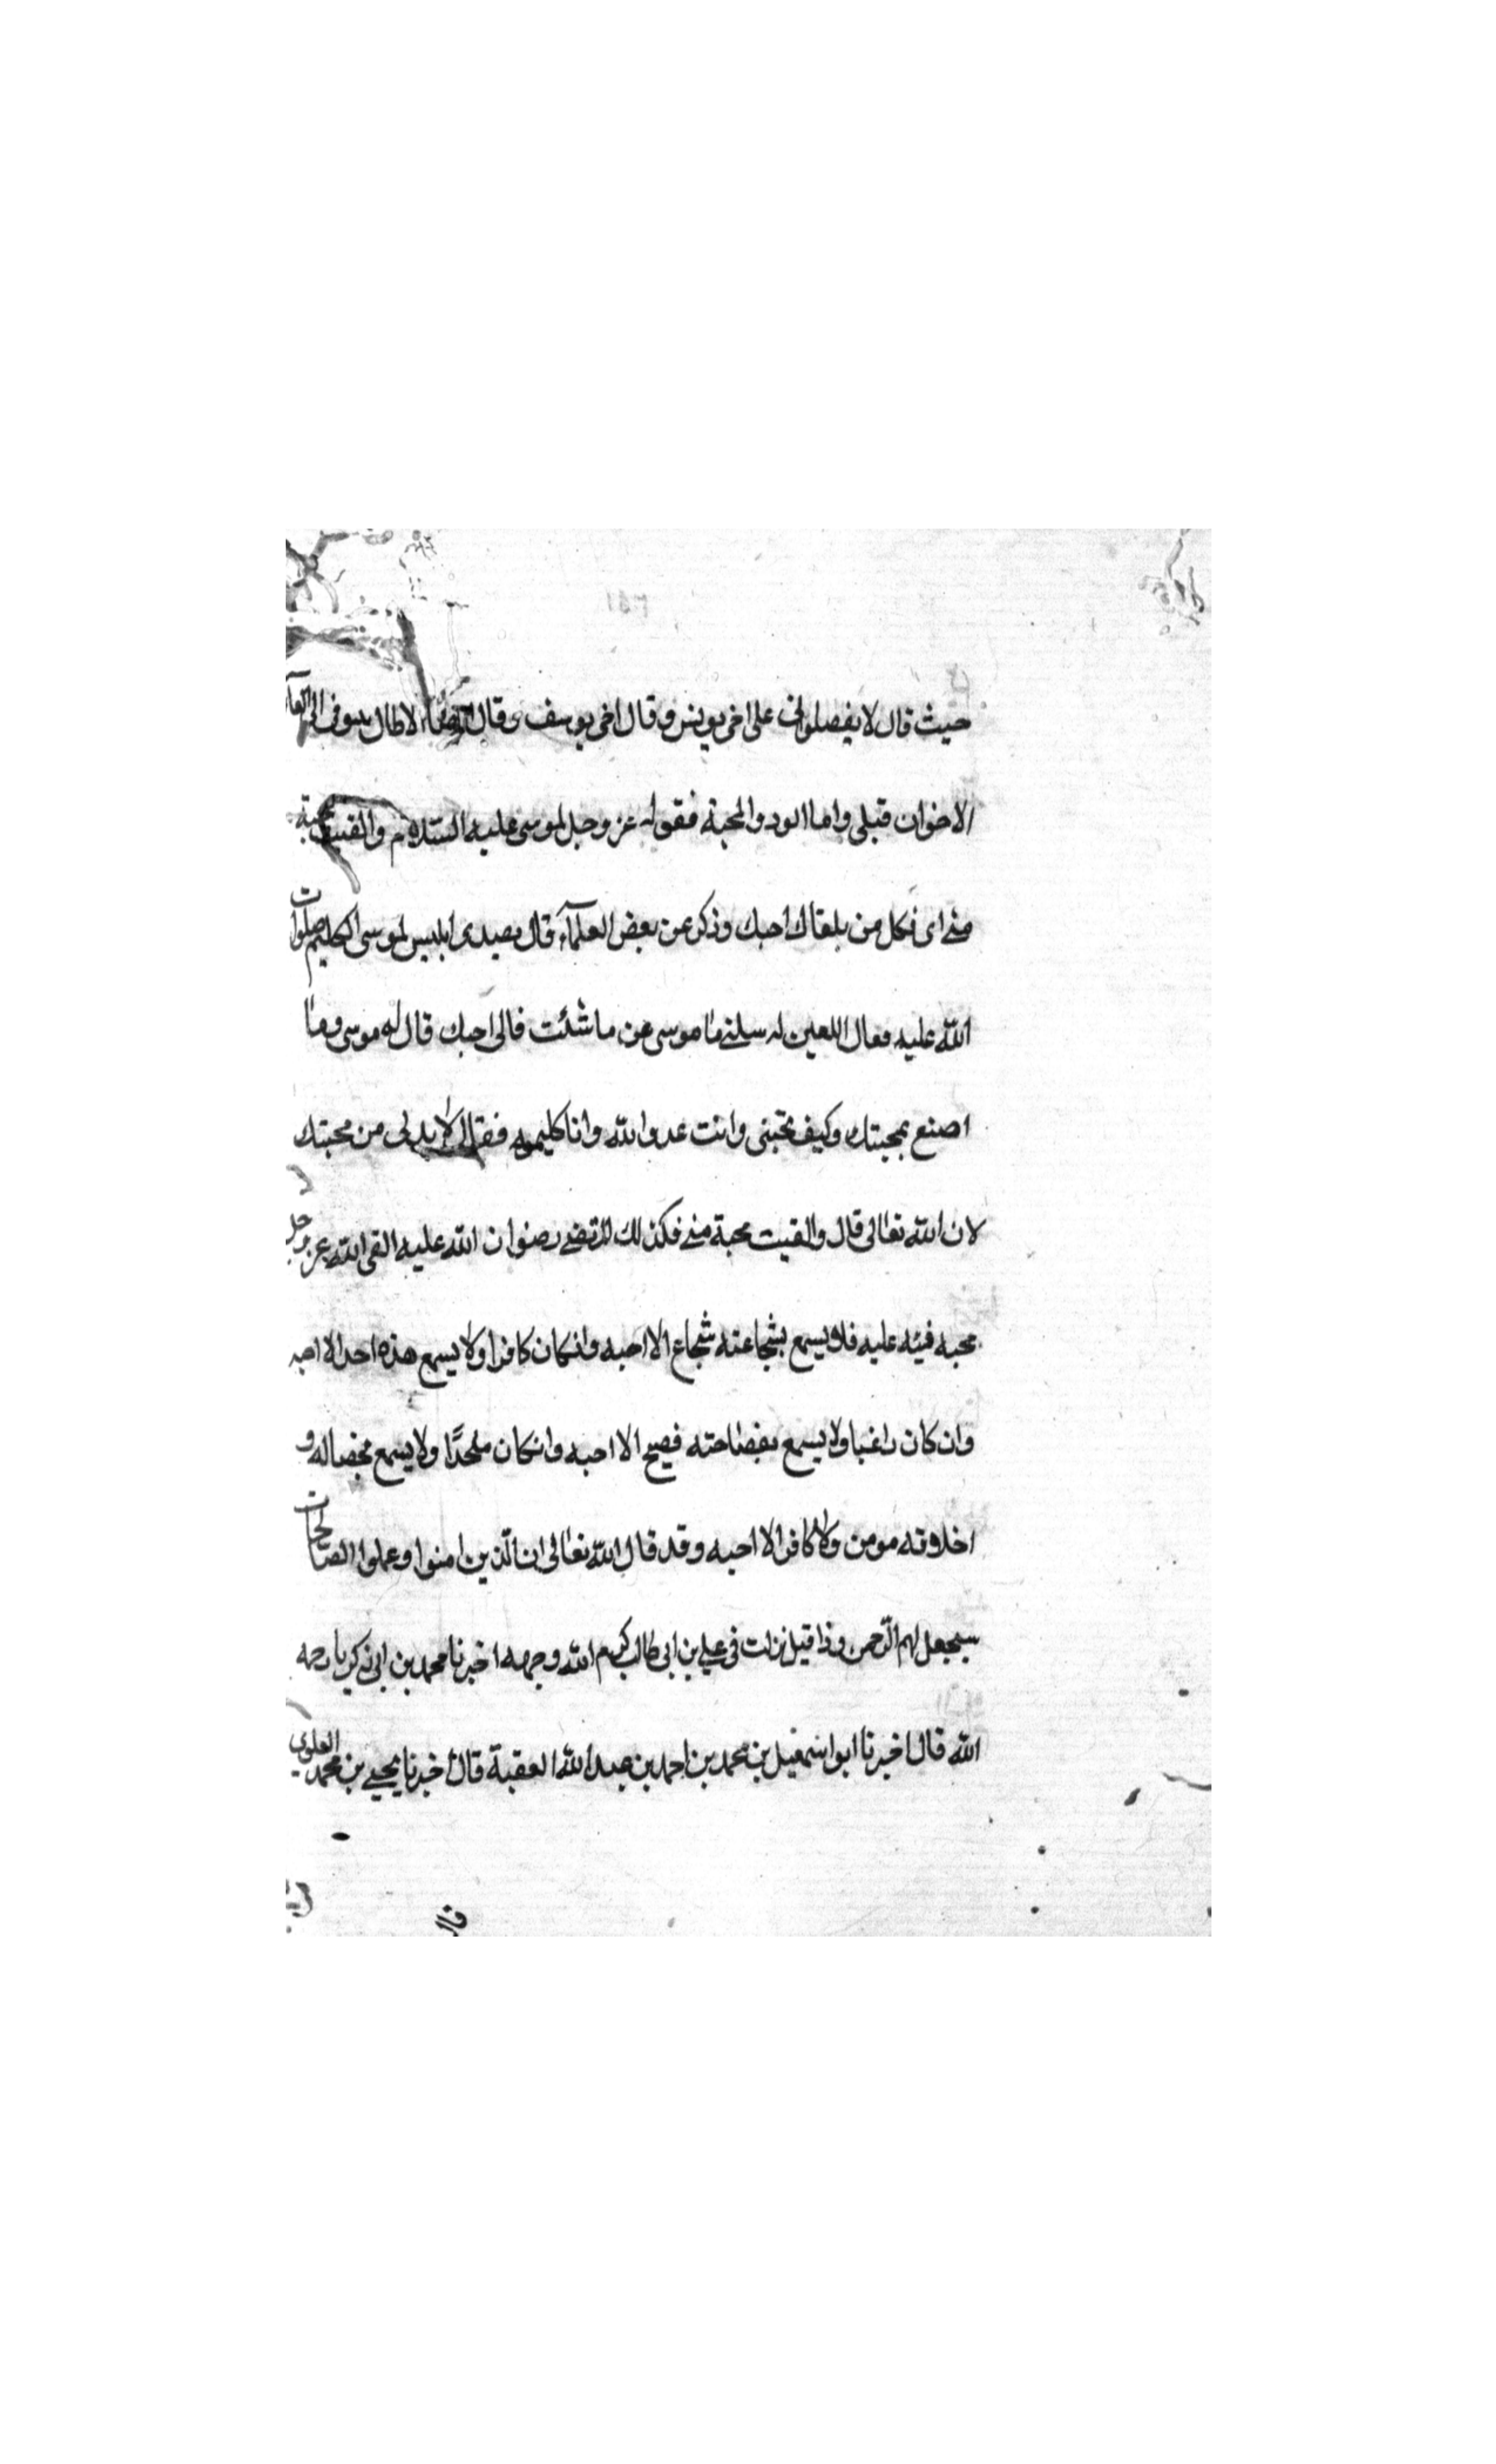 حيث قال لا يفصلوانى على اخى يونس و قال اخى يوسف و قال ايضا الا طال شوقى الى لقاء
الاخوان قبلى واما الود والمحبة فقوله عز وجل لموسى عليه السلام والقيت محبة
منى اى فكل من يلقاك احبك وذكر عن بعض العلمآء قال تصيدى ابليس لموسى الكليم صلوات
الله عليه فعال اللعين له سلنى يا موسى عن ما شئت فالى احبك قال له موسى وما
اصنع بمحبتك وكيف تحبنى وانت عدو الله وانا كليمه فقال لا بد لى من محبتك
لان الله تعالى قال والقيت محبة منى فكذلك المرتضى رضوان الله عليه القى الله عز وجل
محبه فيئه عليه فلا يسمع بشجاعته شجاع الا احبه وانكان كافرا ولا يسمع هذه احد الا احبه
وان كان راغبا ولا يسمع بفصاحته فصيح الا احبه وانكان ملحدًا ولا يسمع مخصاله و
اخلاقه مومن ولا كافر الا احبه وقد قال الله تعالى ان الذين امنوا وعملوا الصالحات
سيجعل لهم الرحمن ودا قيل نزلت فى علي بن ابى طالب كرم الله وجهه اخبرنا محمد بن ابى زكريا رحمه
الله قال اخبرنا ابو اسمعيل بن محمد بن احمد بن عبد الله العقبة قال اخبرنا يحيى بن محمد العلوي
قال